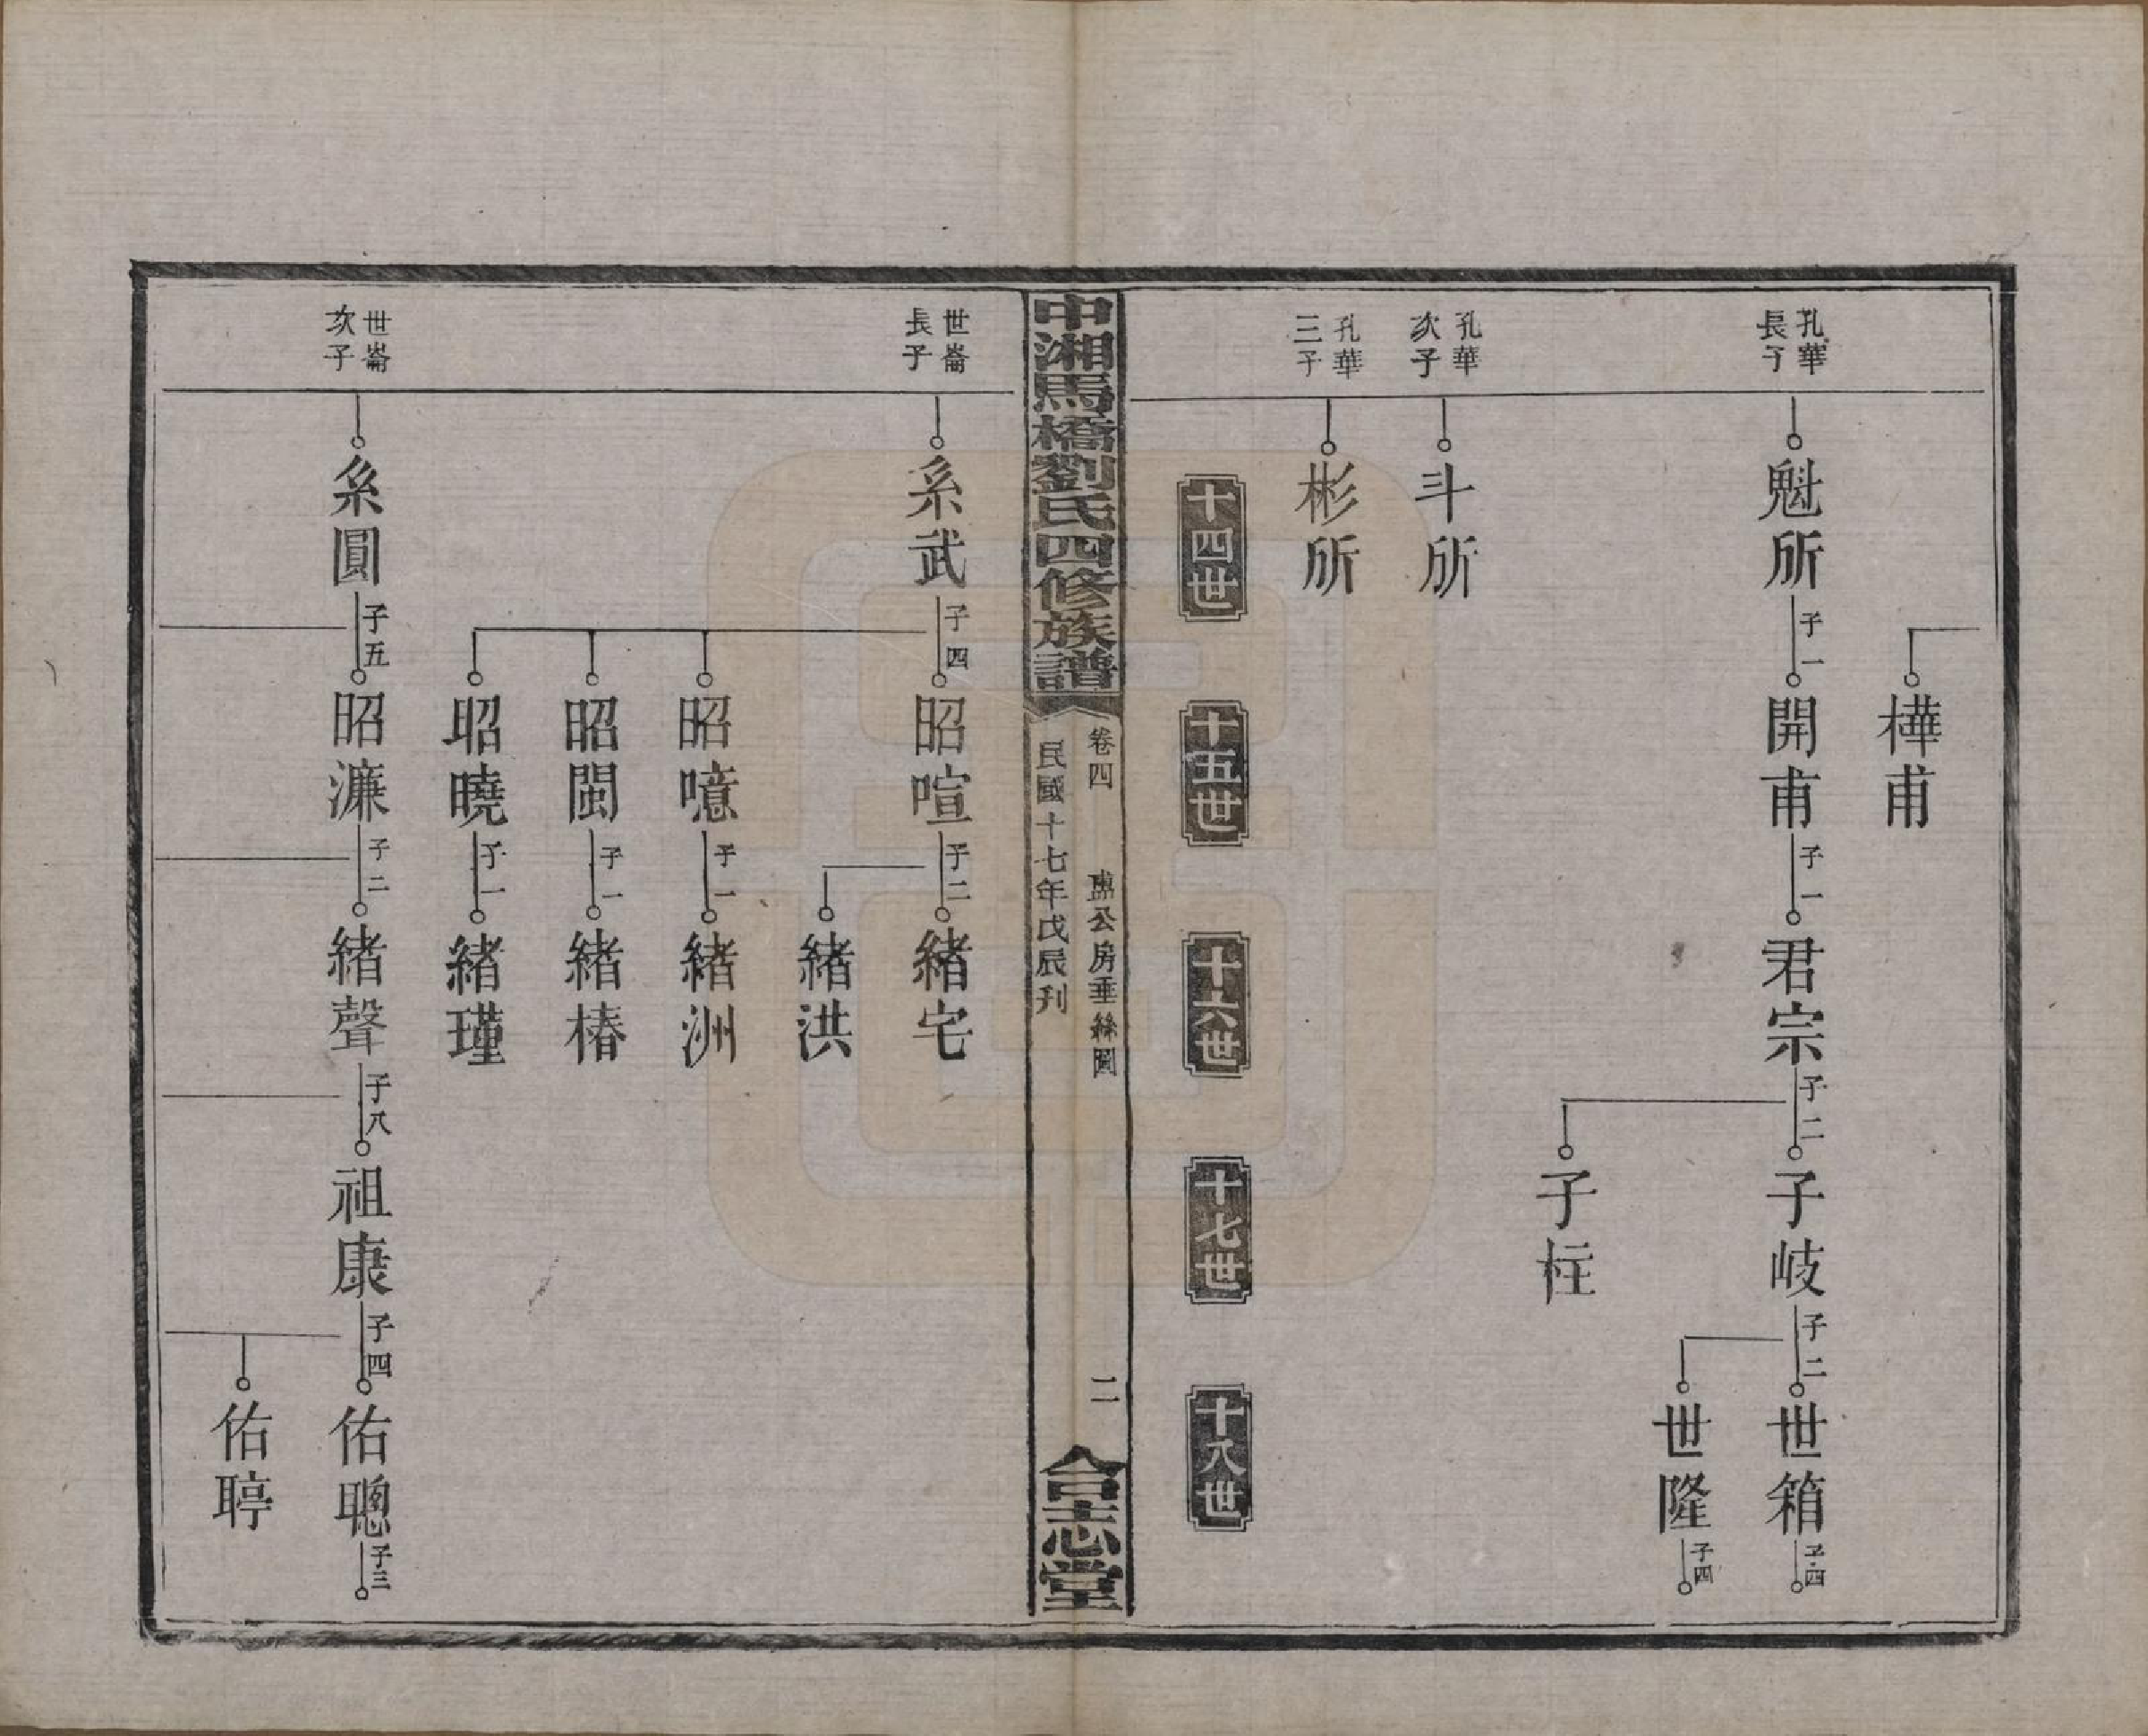 樺甫
孔華
長子
魁所
子一
開甫
子一
君宗
子二
子岐
子二
世箱
子四
世隆
子四
子柱
孔華
次子
斗所
孔華
三子
彬所
十四世
十五世
十六世
十七世
十八世
中湘馬橋劉氏四修族譜
卷四
公房垂絲圖
二
民國十七年戊辰刊
合志堂
世崙
長子
系武
子四
昭喧
子二
緒宅
緒洪
昭噫
子一
緒洲
昭閩
子一
緒椿
昭曉
子一
緒瑾
世崙
次子
系圓
子五
昭濂
子二
緒聲
子八
祖康
子四
佑聰
子三
佑聤